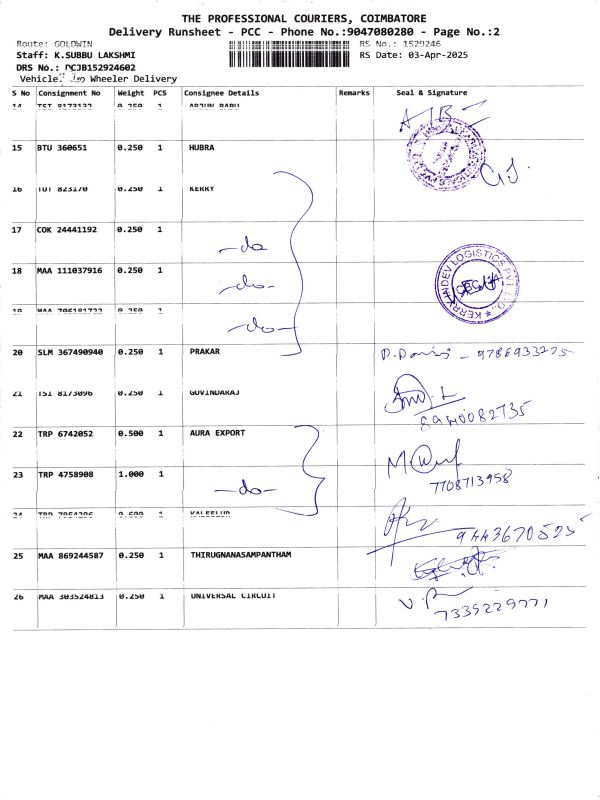 THE PROFESSIONAL COURIERS, COIMBATORE
Delivery Runsheet - PCC - Phone No.:9047080280 - Page No.:2
Route: GOLDWIN RS No.: 1529246
Staff: K.SUBBU LAKSHMI RS Date: 03-Apr-2025
DRS No.: PCJB152924602
Vehicle: Two Wheeler Delivery
S No Consignment No Weight PCS Consignee Details Remarks Seal & Signature
14 TSI 8173132 0.250 1 ARJUN BABU
15 BTU 360651 0.250 1 HUBRA
16 TUT 823170 0.250 1 KERRY
17 COK 24441192 0.250 1
-do-
18 MAA 111037916 0.250 1
-do-
KERRY INDEV LOGISTICS PVT LTD
19 MAA 706181722 0.250 1
-do-
20 SLM 367490940 0.250 1 PRAKAR 9786933275
21 TSI 8173096 0.250 1 GOVINDARAJ
8940082735
22 TRP 6742052 0.500 1 AURA EXPORT
7708713958
23 TRP 4758908 1.000 1
-do-
24 TRP 0.600 1 KALEELUR
9443670525
25 MAA 869244587 0.250 1 THIRUGNANASAMPANTHAM
26 MAA 303524813 0.250 1 UNIVERSAL CIRCUIT
7339229771